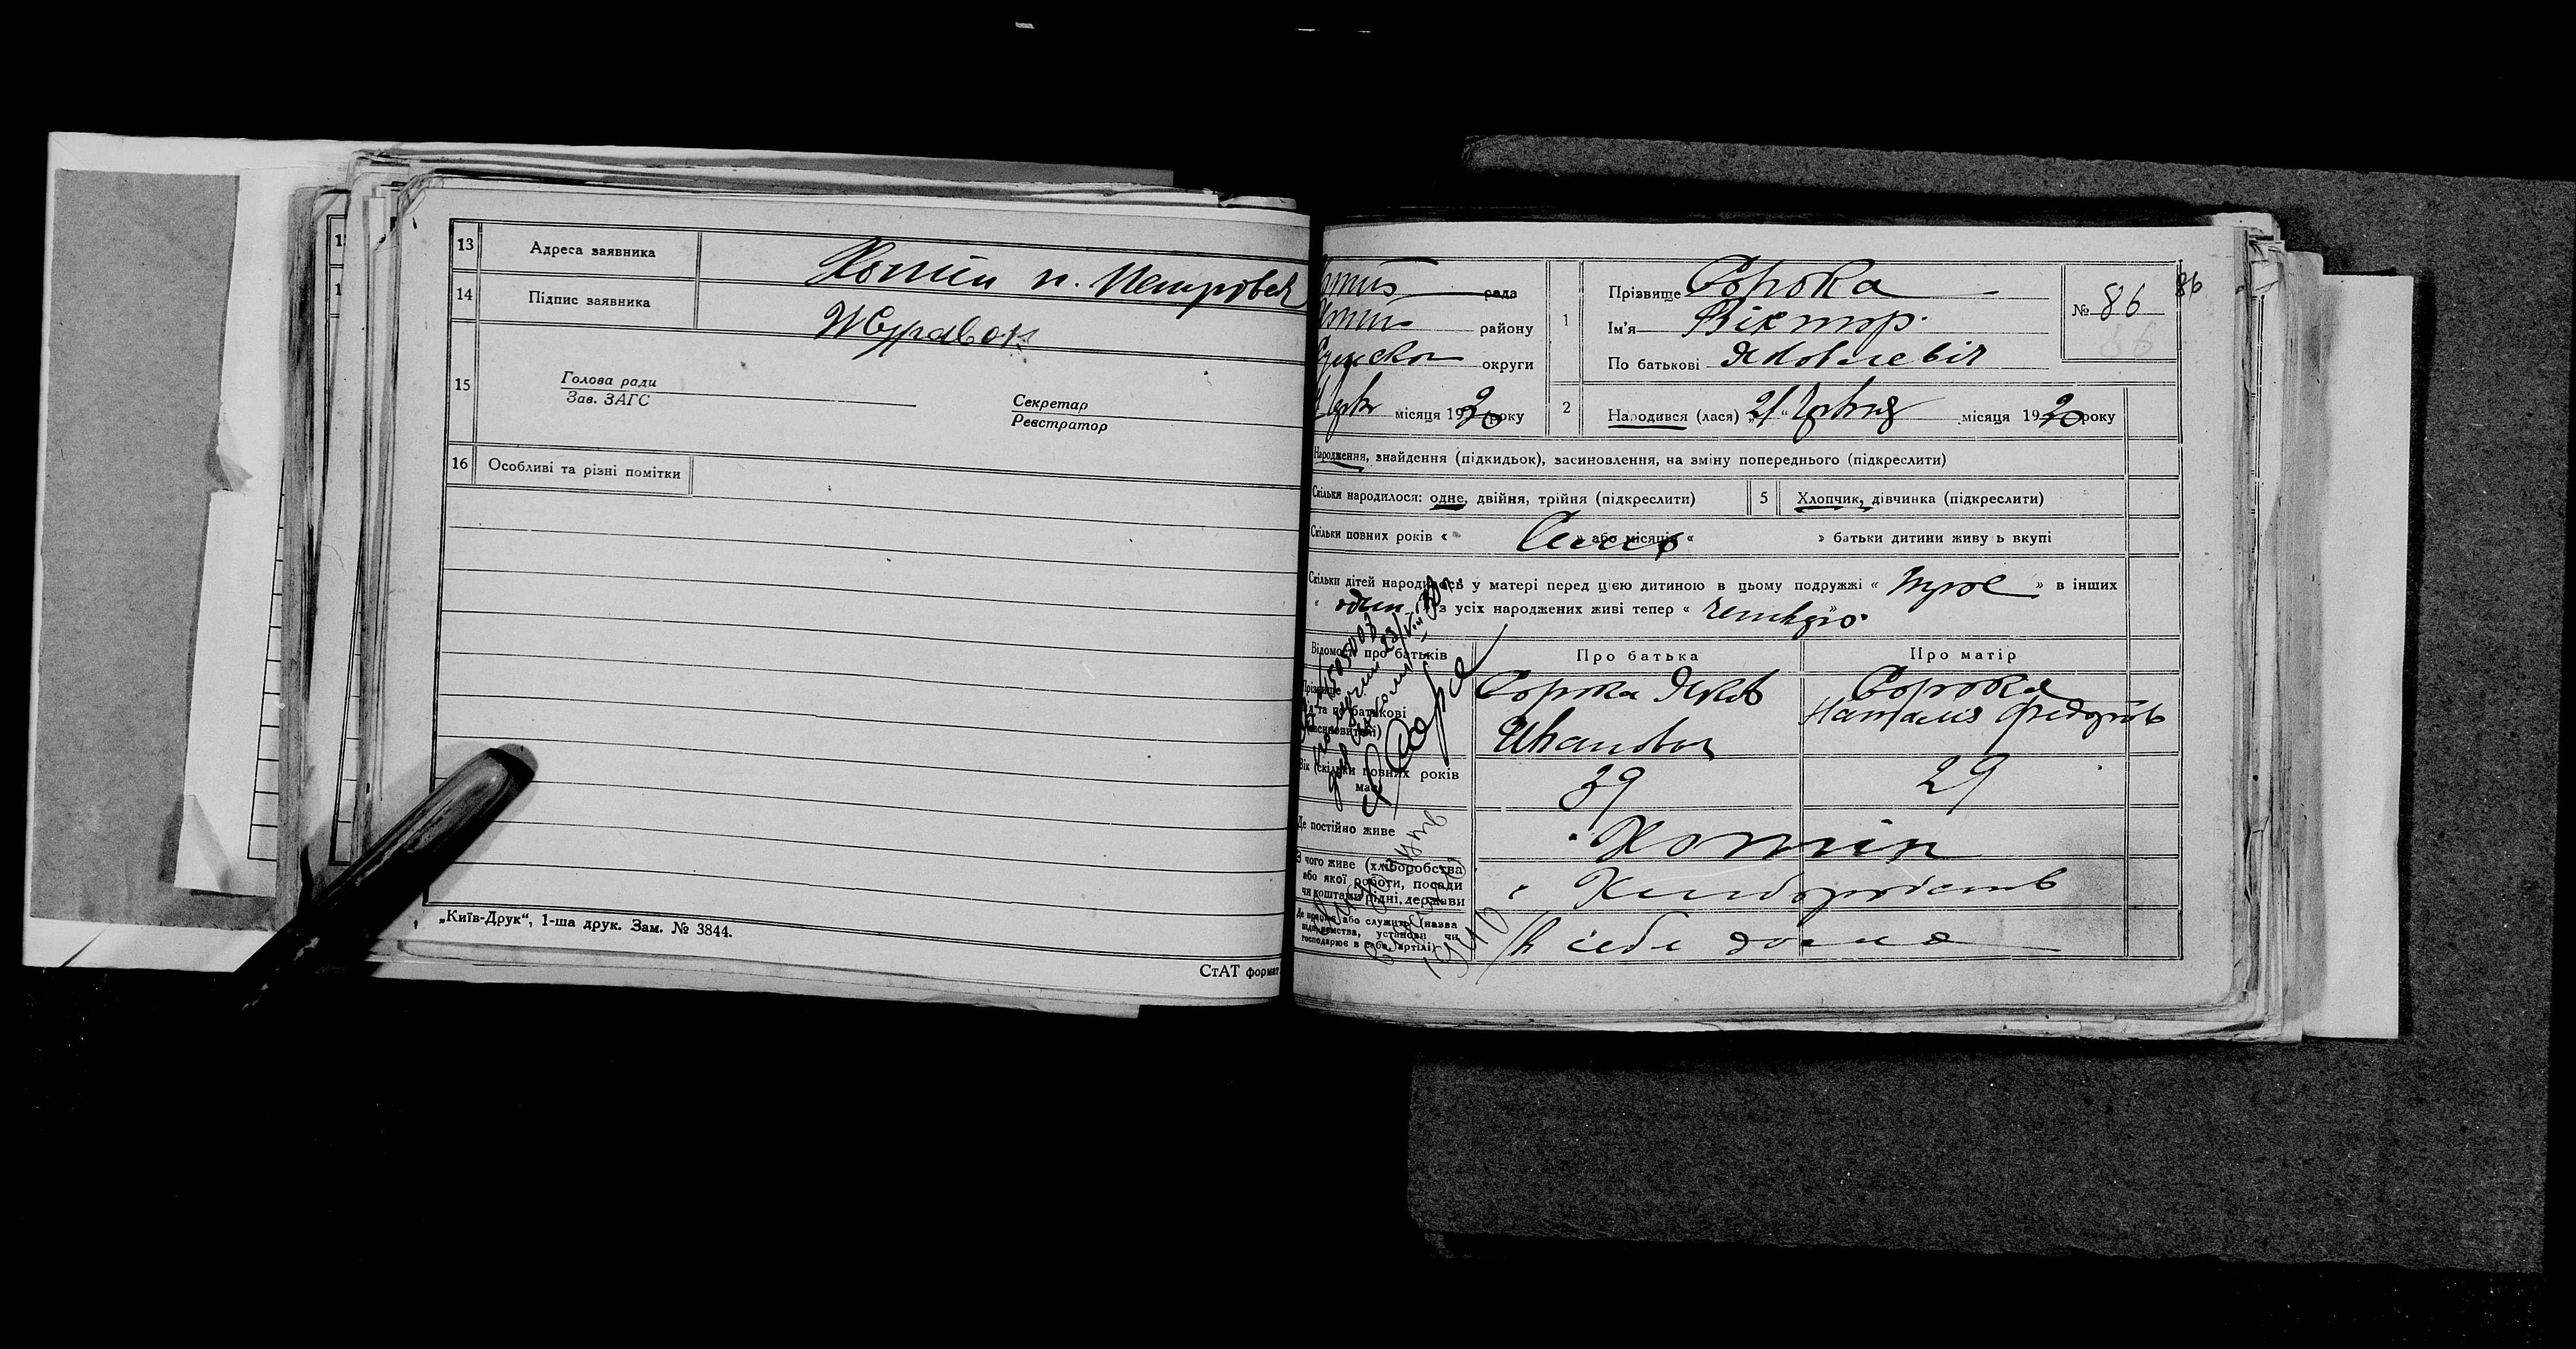 13 Адреса заявника Хотін п. Петровск
14 Підпис заявника Журавок
15 Голова ради
Зав. ЗАГС
Секретар
Реєстратор
16 Особливі та різні помітки
„Київ-Друк“, 1-ша друк. Зам. № 3844.
СтАТ формат
рада
району
округи
місяця 1930 року
1 Прізвище Сорока
Ім'я Віктор
По батькові Яковлевіч
№ 86
86
2 Народився (лася) „21“ Червня місяця 1930 року
Народження, знайдення (підкидьок), засиновлення, на зміну попереднього (підкреслити)
Скільки народилося: одне, двійня, трійня (підкреслити)
5 Хлопчик, дівчинка (підкреслити)
Скільки повних років « » або місяців « » батьки дитини живуть вкупі
Скільки дітей народилось у матері перед цією дитиною в цьому подружжі « трое » в інших
« один » з усіх народжених живі тепер « четверо
Відомості про батьків
Про батька
Про матір
Прізвище
ім'я та по батькові
(засиновителі)
Сорока Яков
Иванович
Сорока
Наталія Федоров
Вік (скільки повних років
має)
39
29
Де постійно живе
Хотін
З чого живе (хліборобства
або якої роботи, посади
чи коштами рідні, держави
Хліборобств
Де працює або служить (назва
підприємства, установи чи
господарює в себе, артілі)
В себе дома